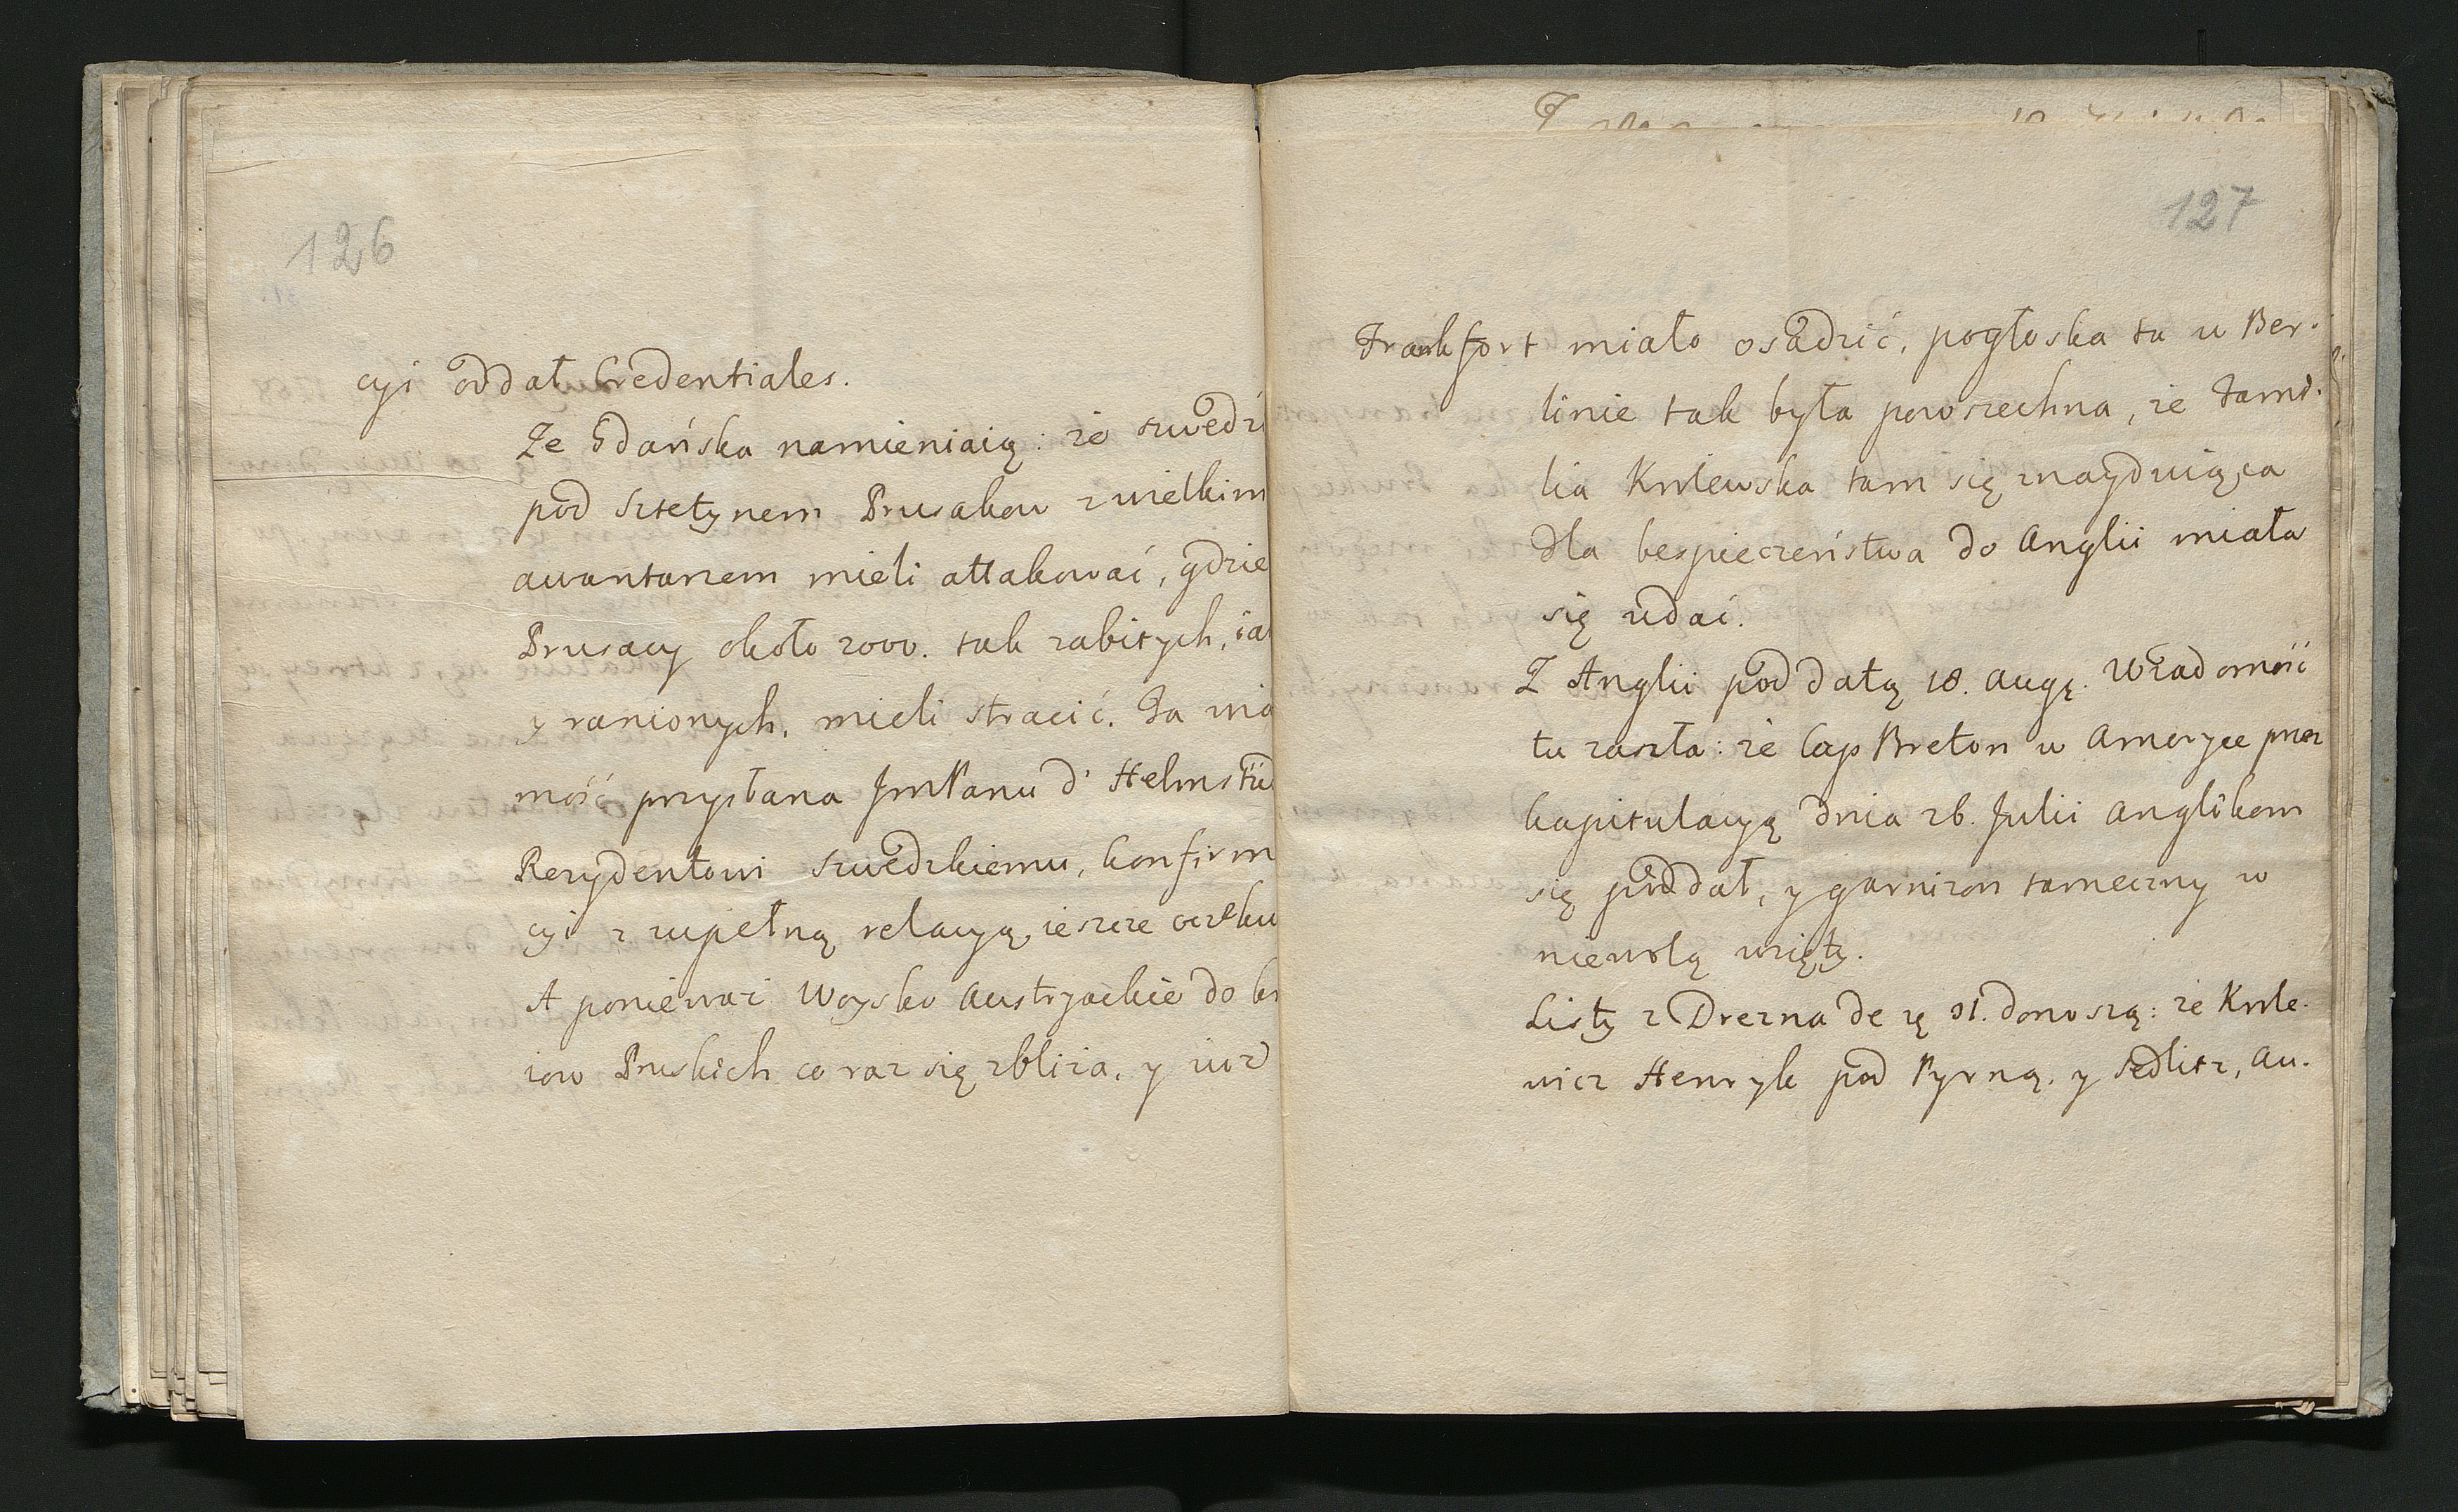 126
cyi oddał Credentiales.
Ze Gdańska namieniaią: że szwedzi
pod Sztetynem Prusakow z wielkim
awantarzem mieli attakować, gdzie
Prusacy około 2000. tak zabitych, ia
y ranionych, mieli stracić. Ta wia
mość przysłana JmPanu d' Helmstäd
Rezydentowi szwedzkiemu, konfirm
cyi z zupełną relacyą, ieszcze oczeku
A ponieważ Woysko Austryackie do kr
iow Pruskich co raz się zbliża, y iuż
127
Frankfort miało osadzić, pogłoska ta w Ber.
linie tak była powszechna, że Fami.
lia Krolewska tam się znayduiąca
dla bespieczeństwa do Anglii miała
się udać.
Z Anglii pod datą 18. Augę. Wiadomość
tu zaszła: że Cap Breton w Ameryce przez
kapitulacyą dnia 26. Julii Anglikom
się poddał, y garnizon tameczny w
niewolą wzięty.
Listy z Drezna de 31. donoszą: że Krole.
wicz Henryk pod Pyrną, y Sedlitz, Au.